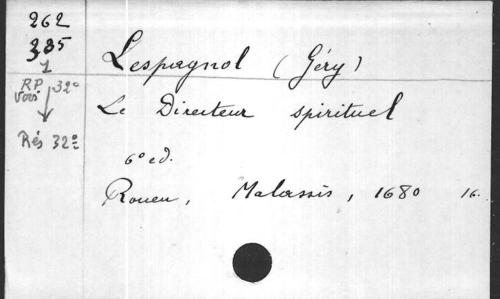 262
335
1
RP. 32º
Voir
Rés 32º
Lespagnol (Géry)
Le Directeur spirituel
6º ed.
Rouen, Malassis, 1680 16.